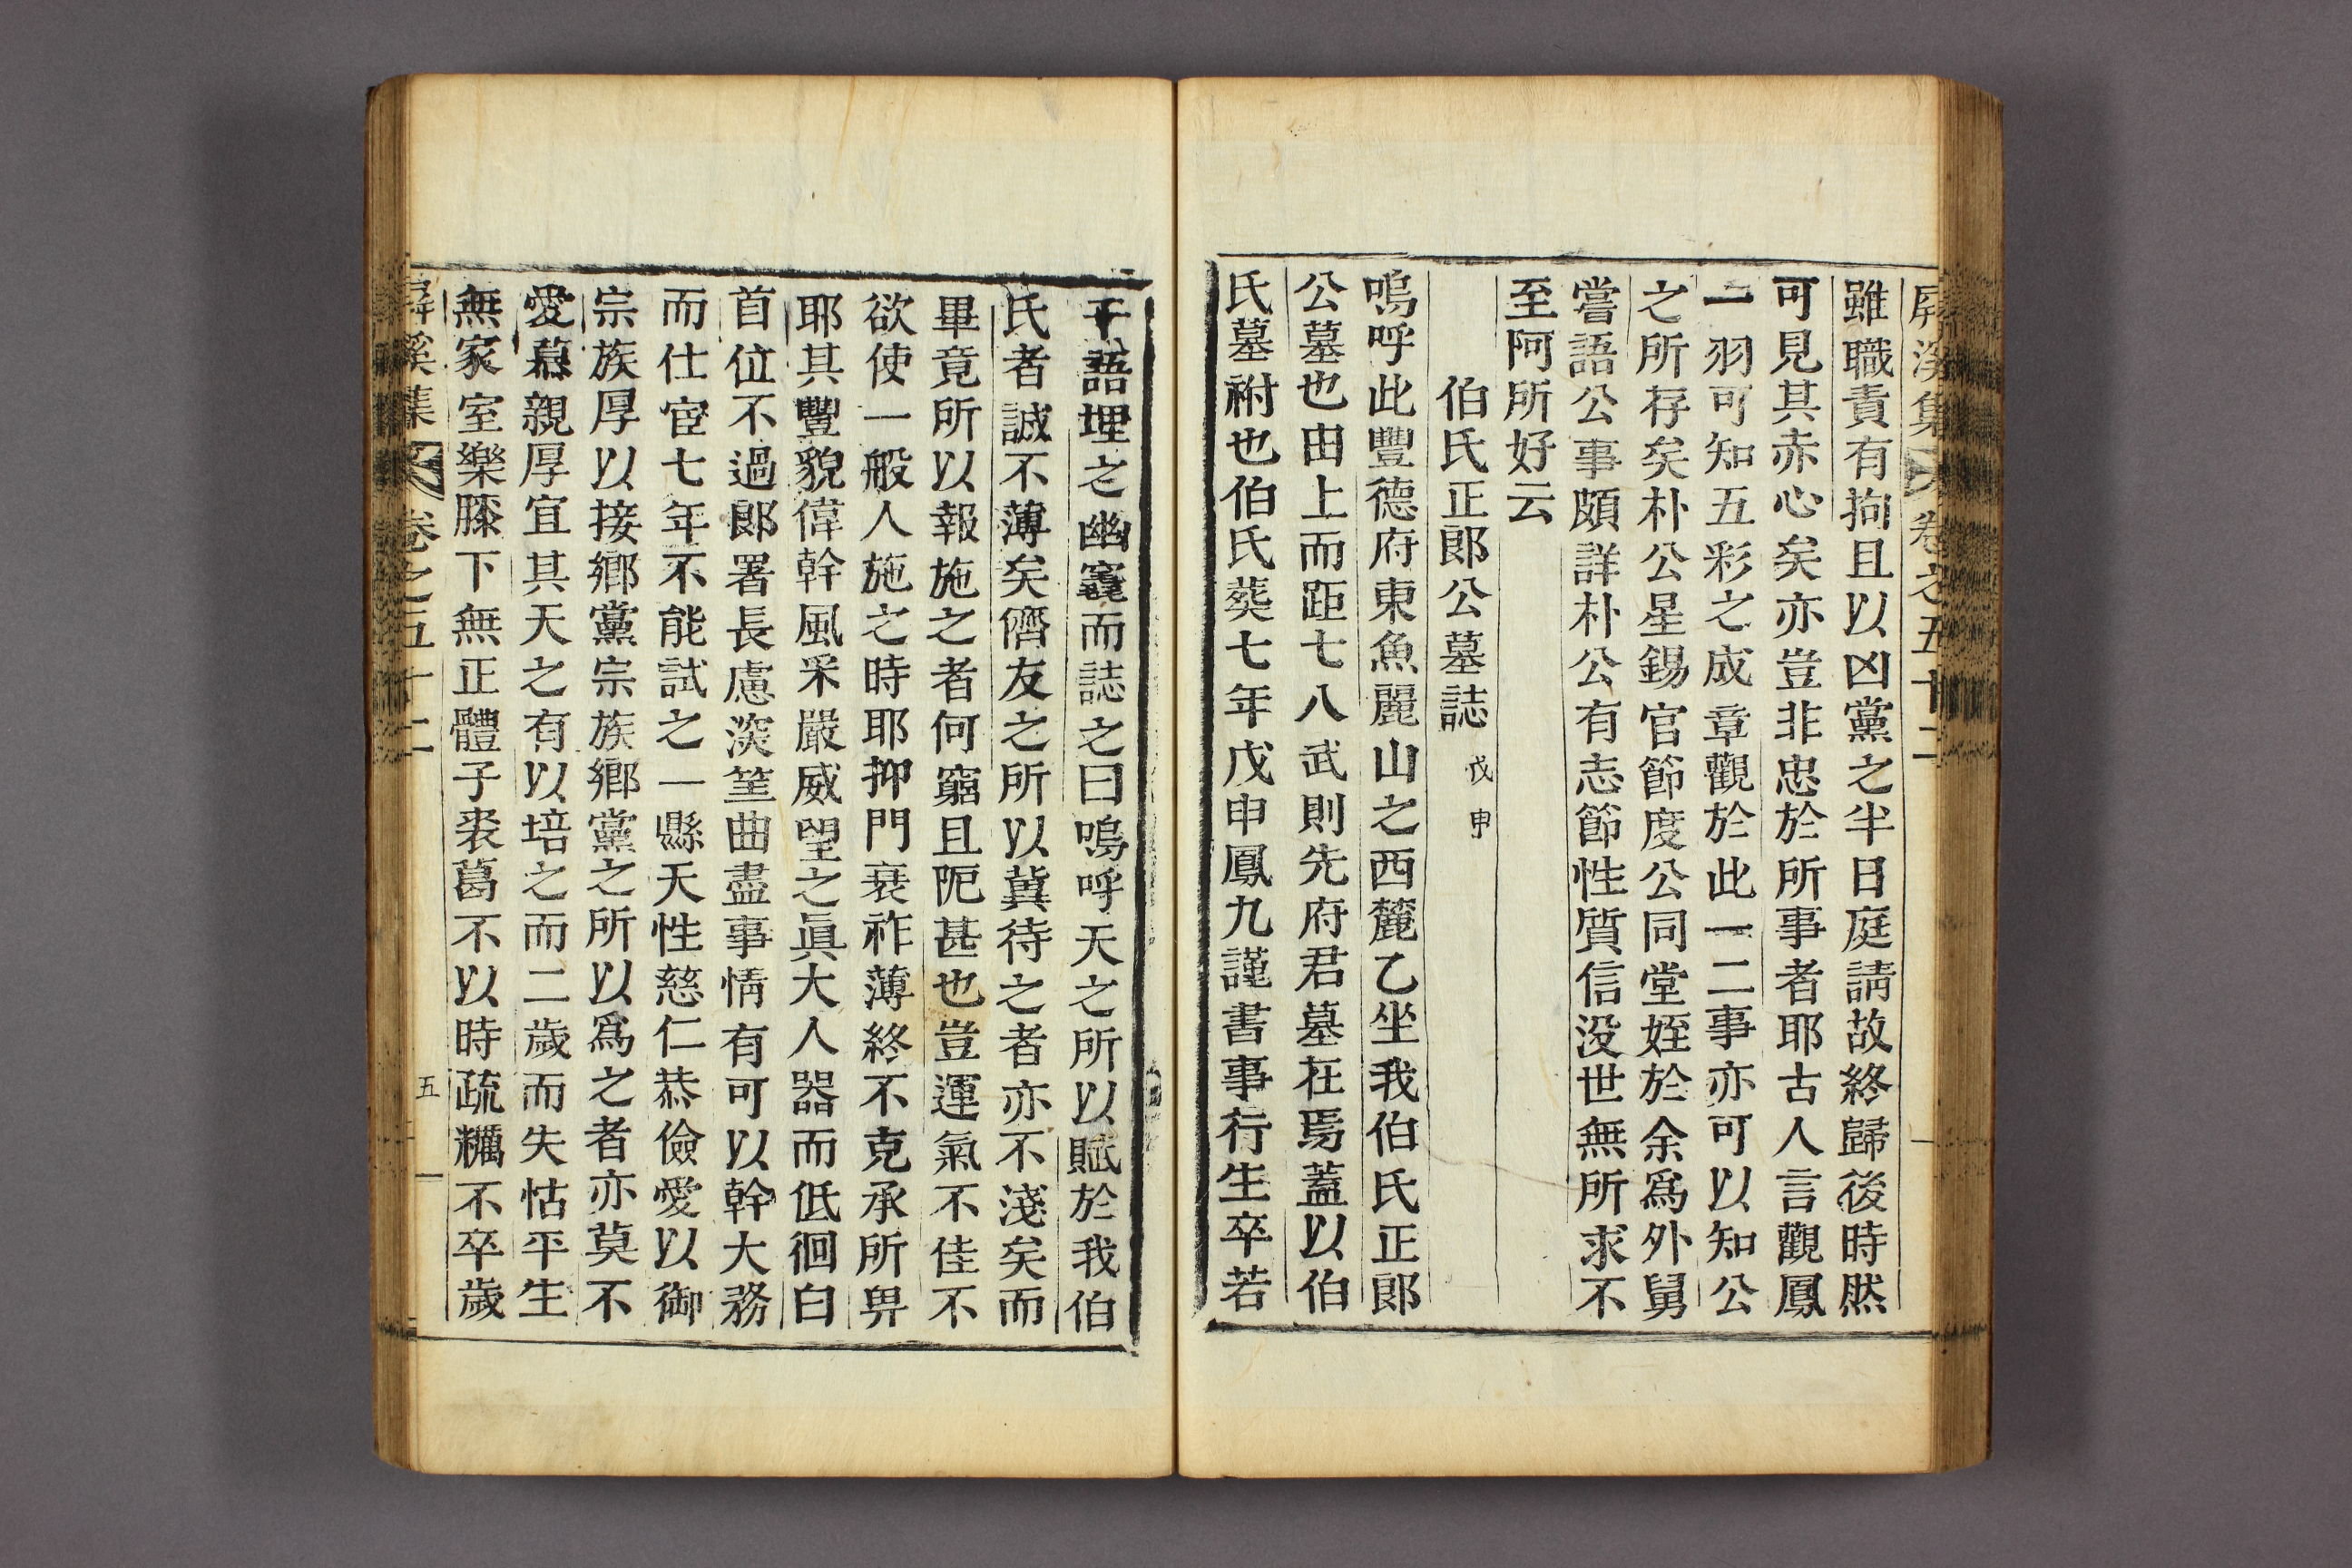 屛溪集 卷之五十二
雖職責有拘且以凶黨之半日庭請故終歸後時然
可見其赤心矣亦豈非忠於所事者耶古人言觀鳳
一羽可知五彩之成章觀於此一二事亦可以知公
之所存矣朴公星錫官節度公同堂姪於余爲外舅
嘗語公事頗詳朴公有志節性質信没世無所求不
至阿所好云
伯氏正郞公墓誌 戊申
嗚呼此豐德府東魚麗山之西麓乙坐我伯氏正郞
公墓也由上而距七八武則先府君墓在焉蓋以伯
氏墓祔也伯氏葬七年戊申鳳九謹書事行生卒若
干語埋之幽竁而誌之曰嗚呼天之所以賦於我伯
氏者誠不薄矣儕友之所以冀待之者亦不淺矣而
畢竟所以報施之者何窮且阨甚也豈運氣不佳不
欲使一般人施之時耶抑門衰祚薄終不克承所畀
耶其豐貌偉幹風采嚴威望之眞大人器而低徊白
首位不過郞署長慮深筭曲盡事情有可以幹大務
而仕宦七年不能試之一縣天性慈仁恭儉愛以御
宗族厚以接鄕黨宗族鄕黨之所以爲之者亦莫不
愛慕親厚宜其天之有以培之而二歲而失怙平生
無家室樂膝下無正體子裘葛不以時疏糲不卒歲
屛溪集 卷之五十二 五